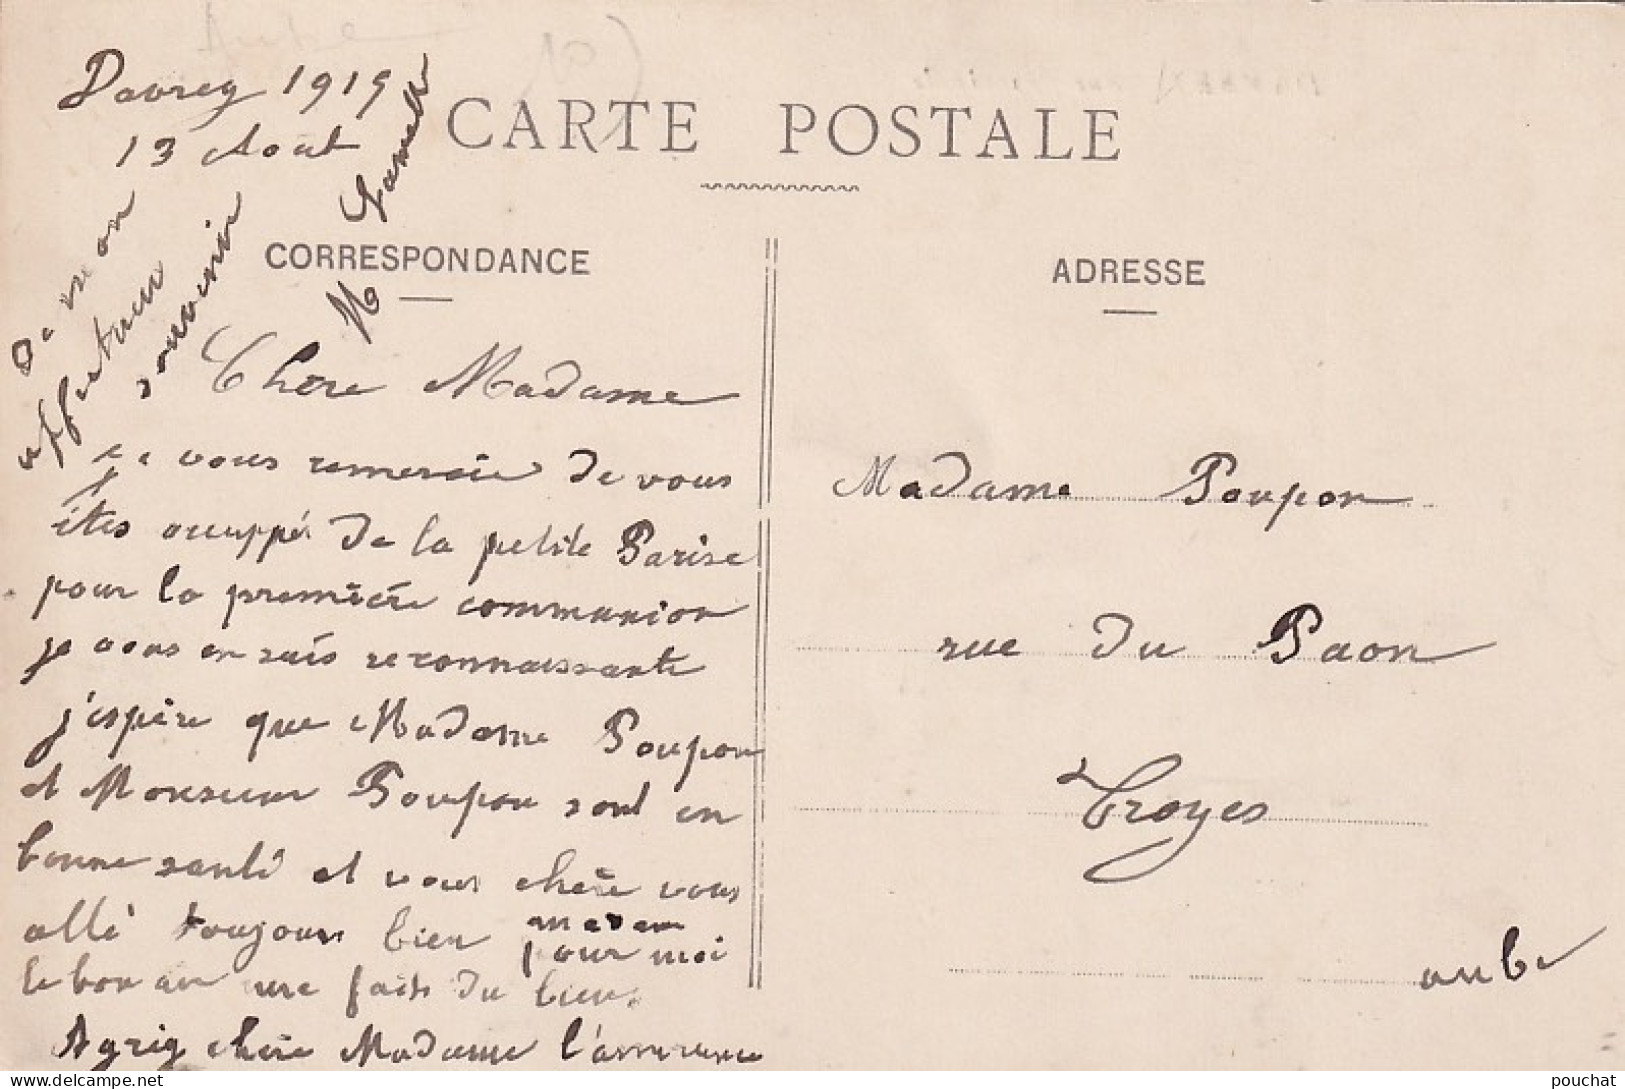 Davrey 1919
13 Aout
CARTE POSTALE
CORRESPONDANCE
ADRESSE
Chère Madame
je vous remercie de vous
êtes occuppé de la petite Parise
pour la première communion
je vous en suis reconnaissante
j'espère que Madame Poupon
et Monsieur Poupon sont en
bonne santé et vous chère madam vous
allé toujours bien pour moi
le bon air me fait du bien.
Agrég chère Madame l'assurence
De mon
affectueu
souvenir
M
Madame Poupon
rue du Paon
Troyes
aube
pouchat